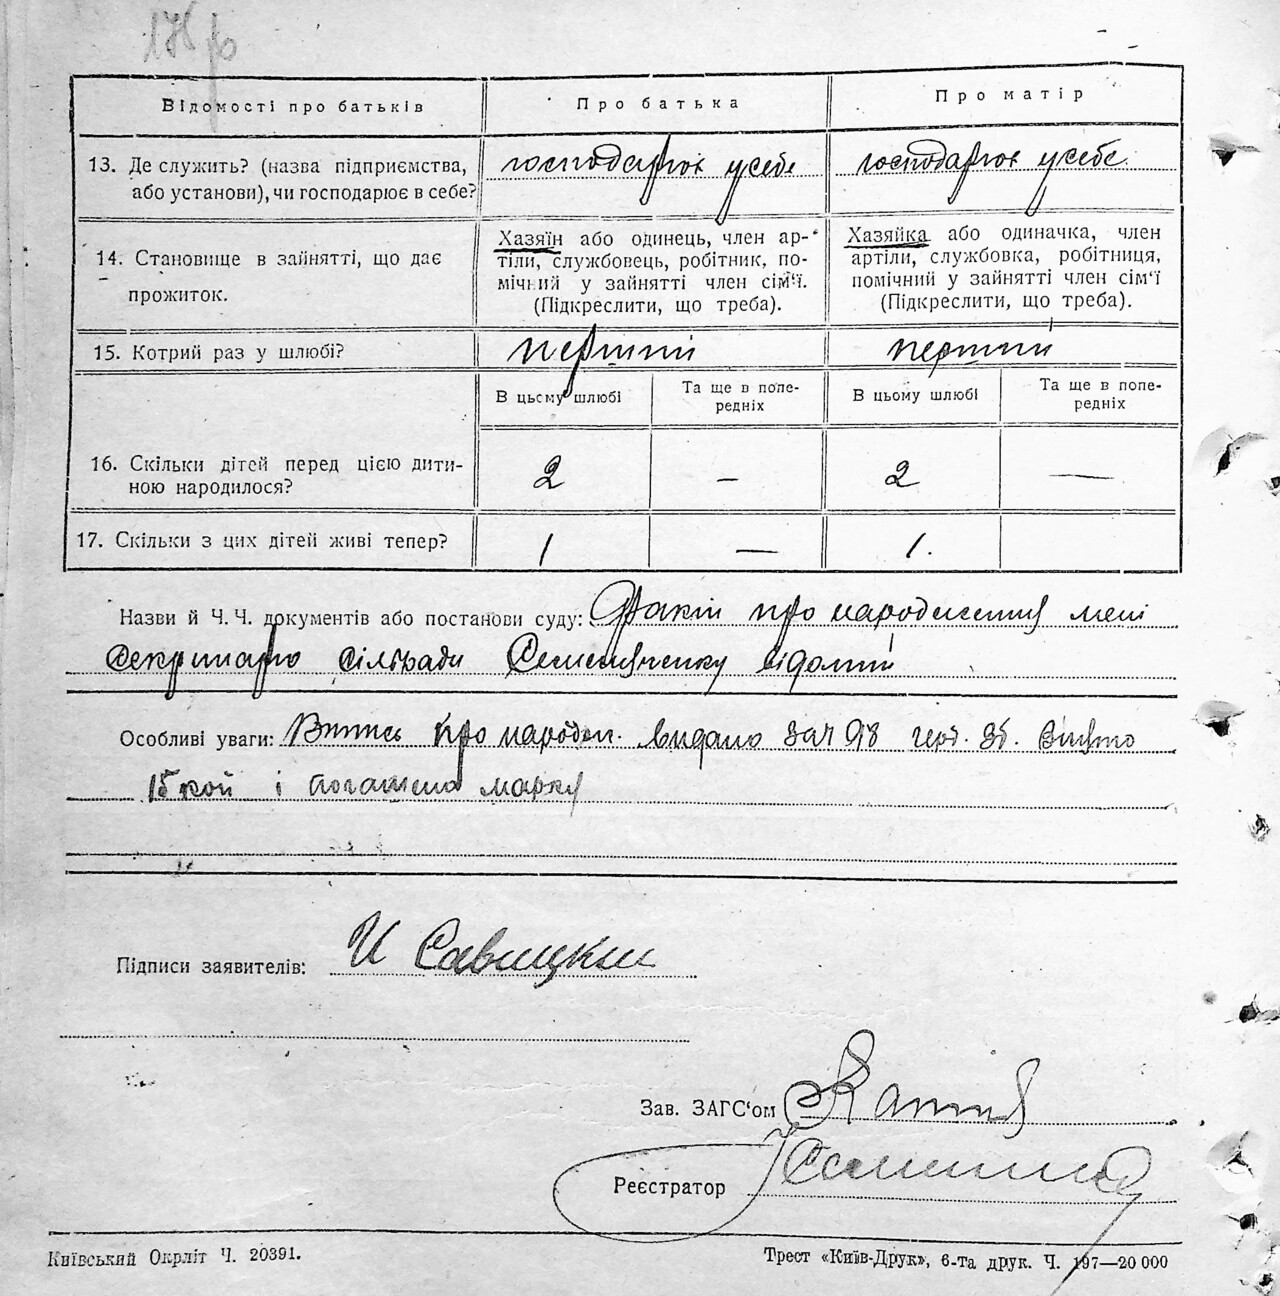 Відомості про батьків
Про батька
Про матір
13. Де служить? (назва підприємства, або установи), чи господарює в себе?
господарює у себе
господарює у себе.
14. Становище в зайнятті, що дає прожиток.
Хазяїн або одинець, член ар-
тіли, службовець, робітник, по-
мічний у зайнятті член сім'ї.
(Підкреслити, що треба).
Хазяйка або одиначка, член
артіли, службовка, робітниця,
помічний у зайнятті член сім'ї
(Підкреслити, що треба).
15. Котрий раз у шлюбі?
перший
перший
В цьому шлюбі
Та ще в попе-
редніх
В цьому шлюбі
Та ще в попе-
редніх
16. Скільки дітей перед цією дити-
ною народилося?
2
—
2
—
17. Скільки з цих дітей живі тепер?
1
—
1.
Назви й Ч. Ч. документів або постанови суду: Факт про народження мені
секритарю сільради відомий
Особливі уваги: Випись про народж. видано за № 98 герб. зб. Взято
15 коп і погашено марку
Підписи заявителів: И Савицкий
Зав. ЗАГС'ом
Реєстратор
Київський Окрліт Ч. 20391.
Трест «Київ-Друк», 6-та друк. Ч. 197—20 000